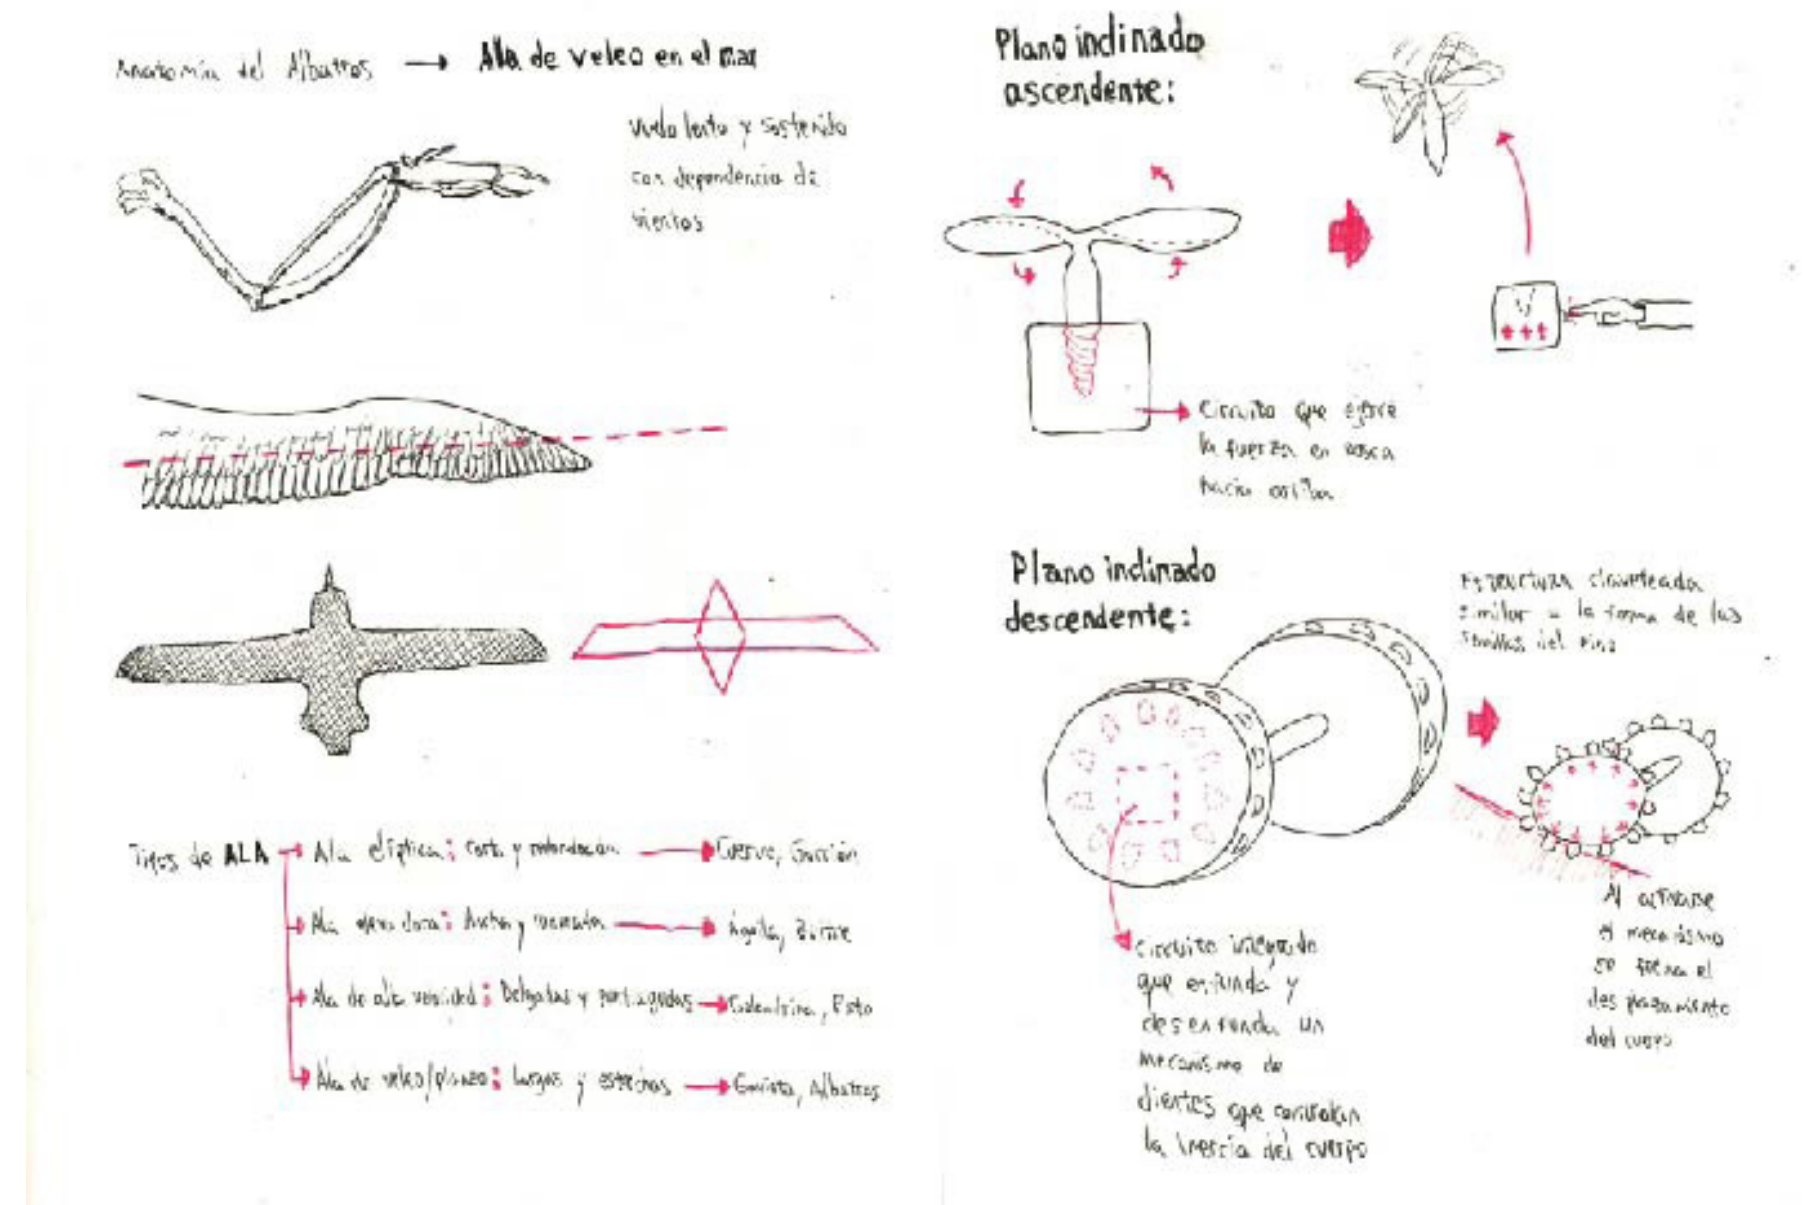 Anatomía del Albatros → Ala de veleo en el mar
Vuelo lento y sostenido
con dependencia de
vientos
Tipos de ALA
Ala elíptica: corta y redondeada → Cuervo, Gorrión
Ala elevadora: Ancha y → Águila, Buitre
Ala de alta velocidad: Delgadas y puntiagudas → Golondrina,
Ala de veleo/planeo: largas y estrechas → Gaviota, Albatros
Plano inclinado
ascendente:
Circuito que ejerce
la fuerza en rosca
hacia arriba
Plano inclinado
descendente:
Estructura claveteada
similar a la forma de las
semillas del pino
circuito integrado
que enfunda y
desenfunda un
mecanismo de
dientes que controlan
la inercia del cuerpo
Al activarse
el mecanismo
se frena el
desplazamiento
del cuerpo